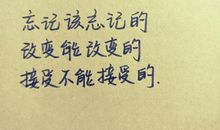 忘记该忘记的
改变能改变的
接受不能接受的.